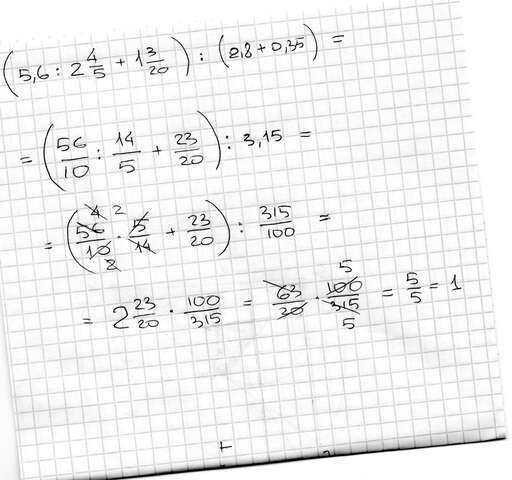 (5,6 : 2 4/5 + 1 3/20) : (2,8 + 0,35) =
= (56/10 : 14/5 + 23/20) : 3,15 =
= (56/10 · 5/14 + 23/20) : 315/100 =
4 2
2
= 2 23/20 · 100/315 = 63/20 · 100/315 = 5/5 = 1
5
5